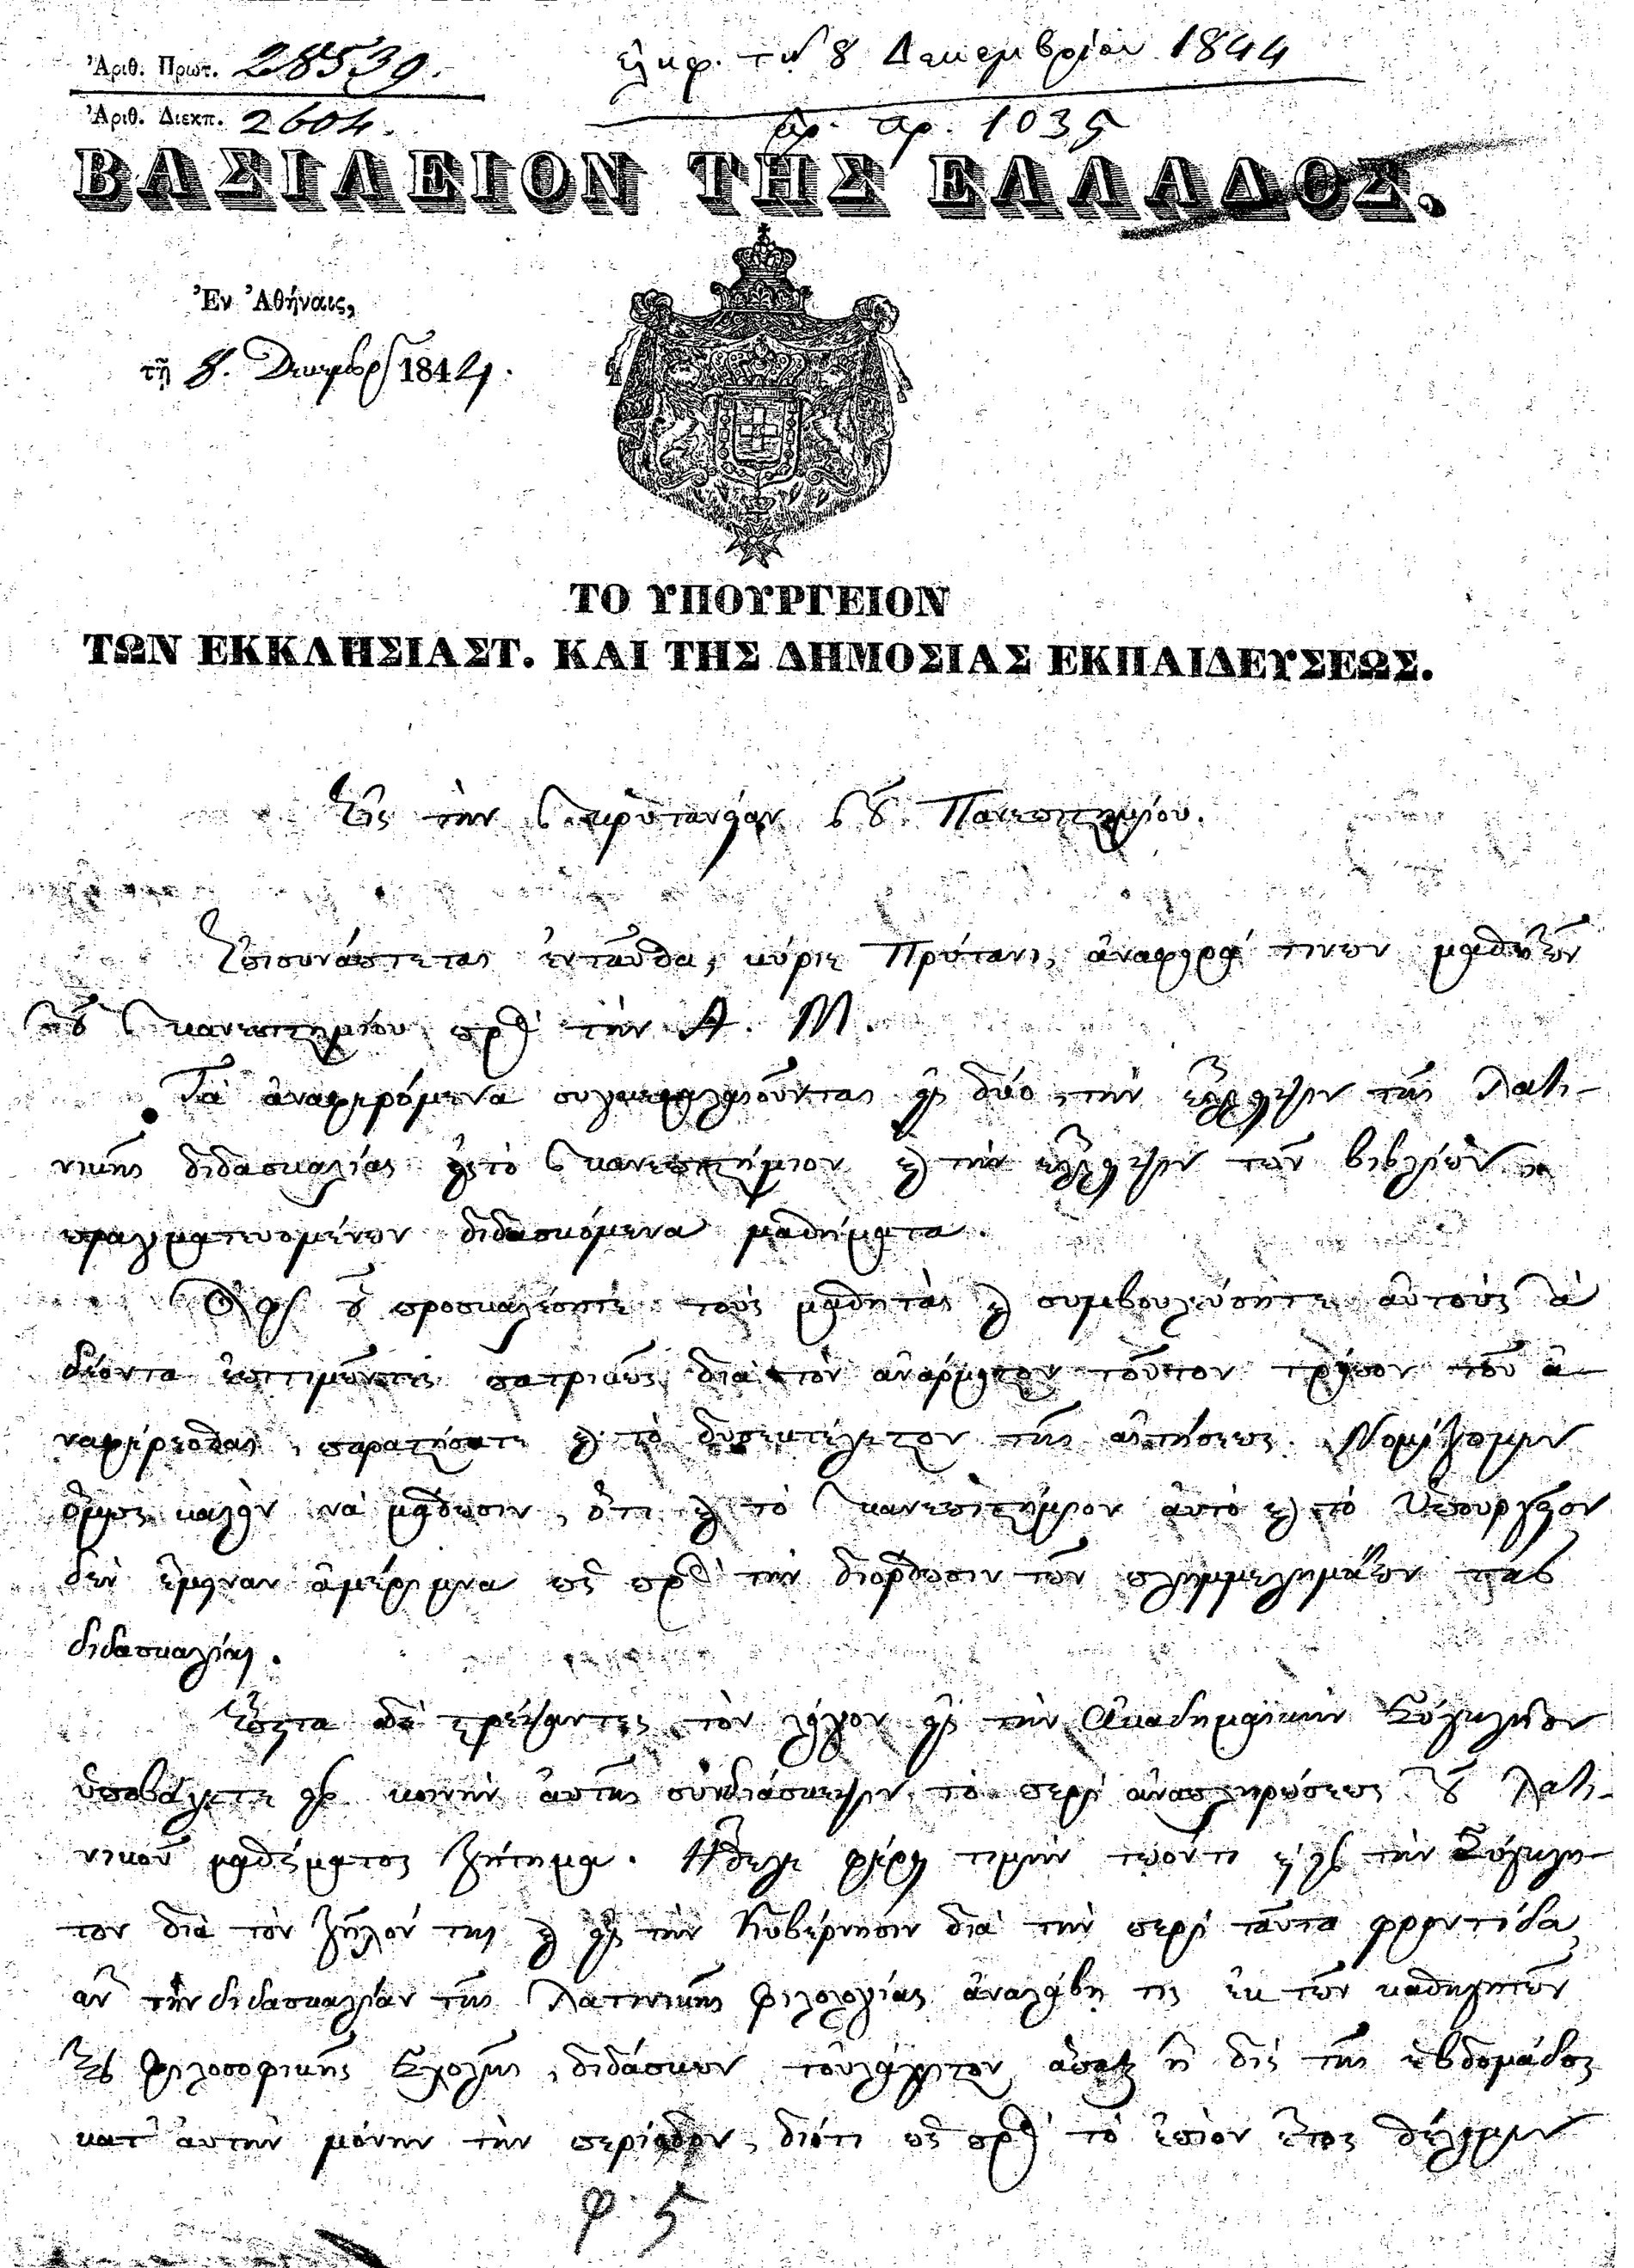 Ἀριθ. Πρωτ. 28539.
εἰσηρ. τὴν 8 Δεκεμβρίου 1844
Ἀριθ. Διεκπ. 2604.
ἀρ. πρ. 1035
ΒΑΣΙΛΕΙΟΝ ΤΗΣ ΕΛΛΑΔΟΣ.
Ἐν Ἀθήναις,
τῇ 8. Δεκεμβρ 1844.
ΤΟ ΥΠΟΥΡΓΕΙΟΝ
ΤΩΝ ΕΚΚΛΗΣΙΑΣΤ. ΚΑΙ ΤΗΣ ΔΗΜΟΣΙΑΣ ΕΚΠΑΙΔΕΥΣΕΩΣ.
Εἰς τὴν πρυτανείαν τοῦ Πανεπιστημίου.
Ἐπισυνάπτεται ἐνταῦθα, κύριε Πρύτανι, ἀναφορά τινων μαθητῶν
τοῦ πανεπιστημίου πρὸς τὴν Α. Μ.
Τὰ ἀναφερόμενα συγκεφαλαιοῦνται εἰς δύο, τὴν ἔλλειψιν τῆς Λατι-
νικῆς διδασκαλίας εἰς τὸ πανεπιστήμιον καὶ τὴν ἔλλειψιν τῶν βιβλίων
πραγματευομένων διδασκόμενα μαθήματα.
προσκαλέσητε τοὺς μαθητὰς καὶ συμβουλεύσητε αὐτοὺς τὰ
δέοντα ἐπιτιμῶντες πατρικῶς διὰ τὸν ἀνάρμοστον τοῦτον τρόπον τοῦ ἀ-
ναφέρεσθαι, παρατήσατε καὶ τὸ δυσεκτέλεστον τῆς αἰτήσεως. Νομίζομεν
ὅμως καλὸν νὰ μάθωσιν, ὅτι καὶ τὸ πανεπιστήμιον αὐτὸ καὶ τὸ Ὑπουργεῖον
δὲν ἔμειναν ἀμέριμνα ὡς πρὸς τὴν διόρθωσιν τῶν πλημμελημάτων τῆς
διδασκαλίας.
Ἔπειτα δὲ τρέψαντες τὸν λόγον εἰς τὴν Ἀκαδημαϊκὴν Σύγκλητον
ὑποβάλετε εἰς κοινὴν αὐτῆς συνδιάσκεψιν τὸ περὶ ἀναπληρώσεως τοῦ Λατι-
νικοῦ μαθήματος ζήτημα. Ἤθελε φέρει τιμὴν τῳόντι εἰς τὴν Σύγκλη-
τον διὰ τὸν ζῆλόν της καὶ εἰς τὴν Κυβέρνησιν διὰ τὴν περὶ ταῦτα φροντίδα,
ἂν τὴν διδασκαλίαν τῆς Λατινικῆς φιλολογίας ἀναλάβῃ τις ἐκ τῶν καθηγητῶν
τῆς φιλοσοφικῆς Σχολῆς, διδάσκων τοὐλάχιστον ἅπαξ ἢ δὶς τῆς ἑβδομάδος
κατ' αὐτὴν μόνην τὴν περίοδον, διότι ὡς πρὸς τὸ ἐπιὸν ἔτος θέλομεν
φ. 5